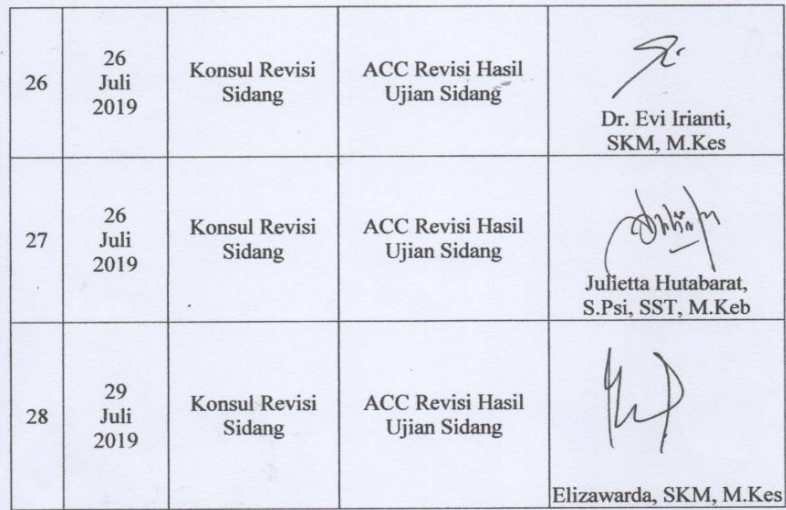 26
26
Juli
2019
Konsul Revisi
Sidang
ACC Revisi Hasil
Ujian Sidang
Dr. Evi Irianti,
SKM, M.Kes
27
26
Juli
2019
Konsul Revisi
Sidang
ACC Revisi Hasil
Ujian Sidang
Julietta Hutabarat,
S.Psi, SST, M.Keb
28
29
Juli
2019
Konsul Revisi
Sidang
ACC Revisi Hasil
Ujian Sidang
Elizawarda, SKM, M.Kes